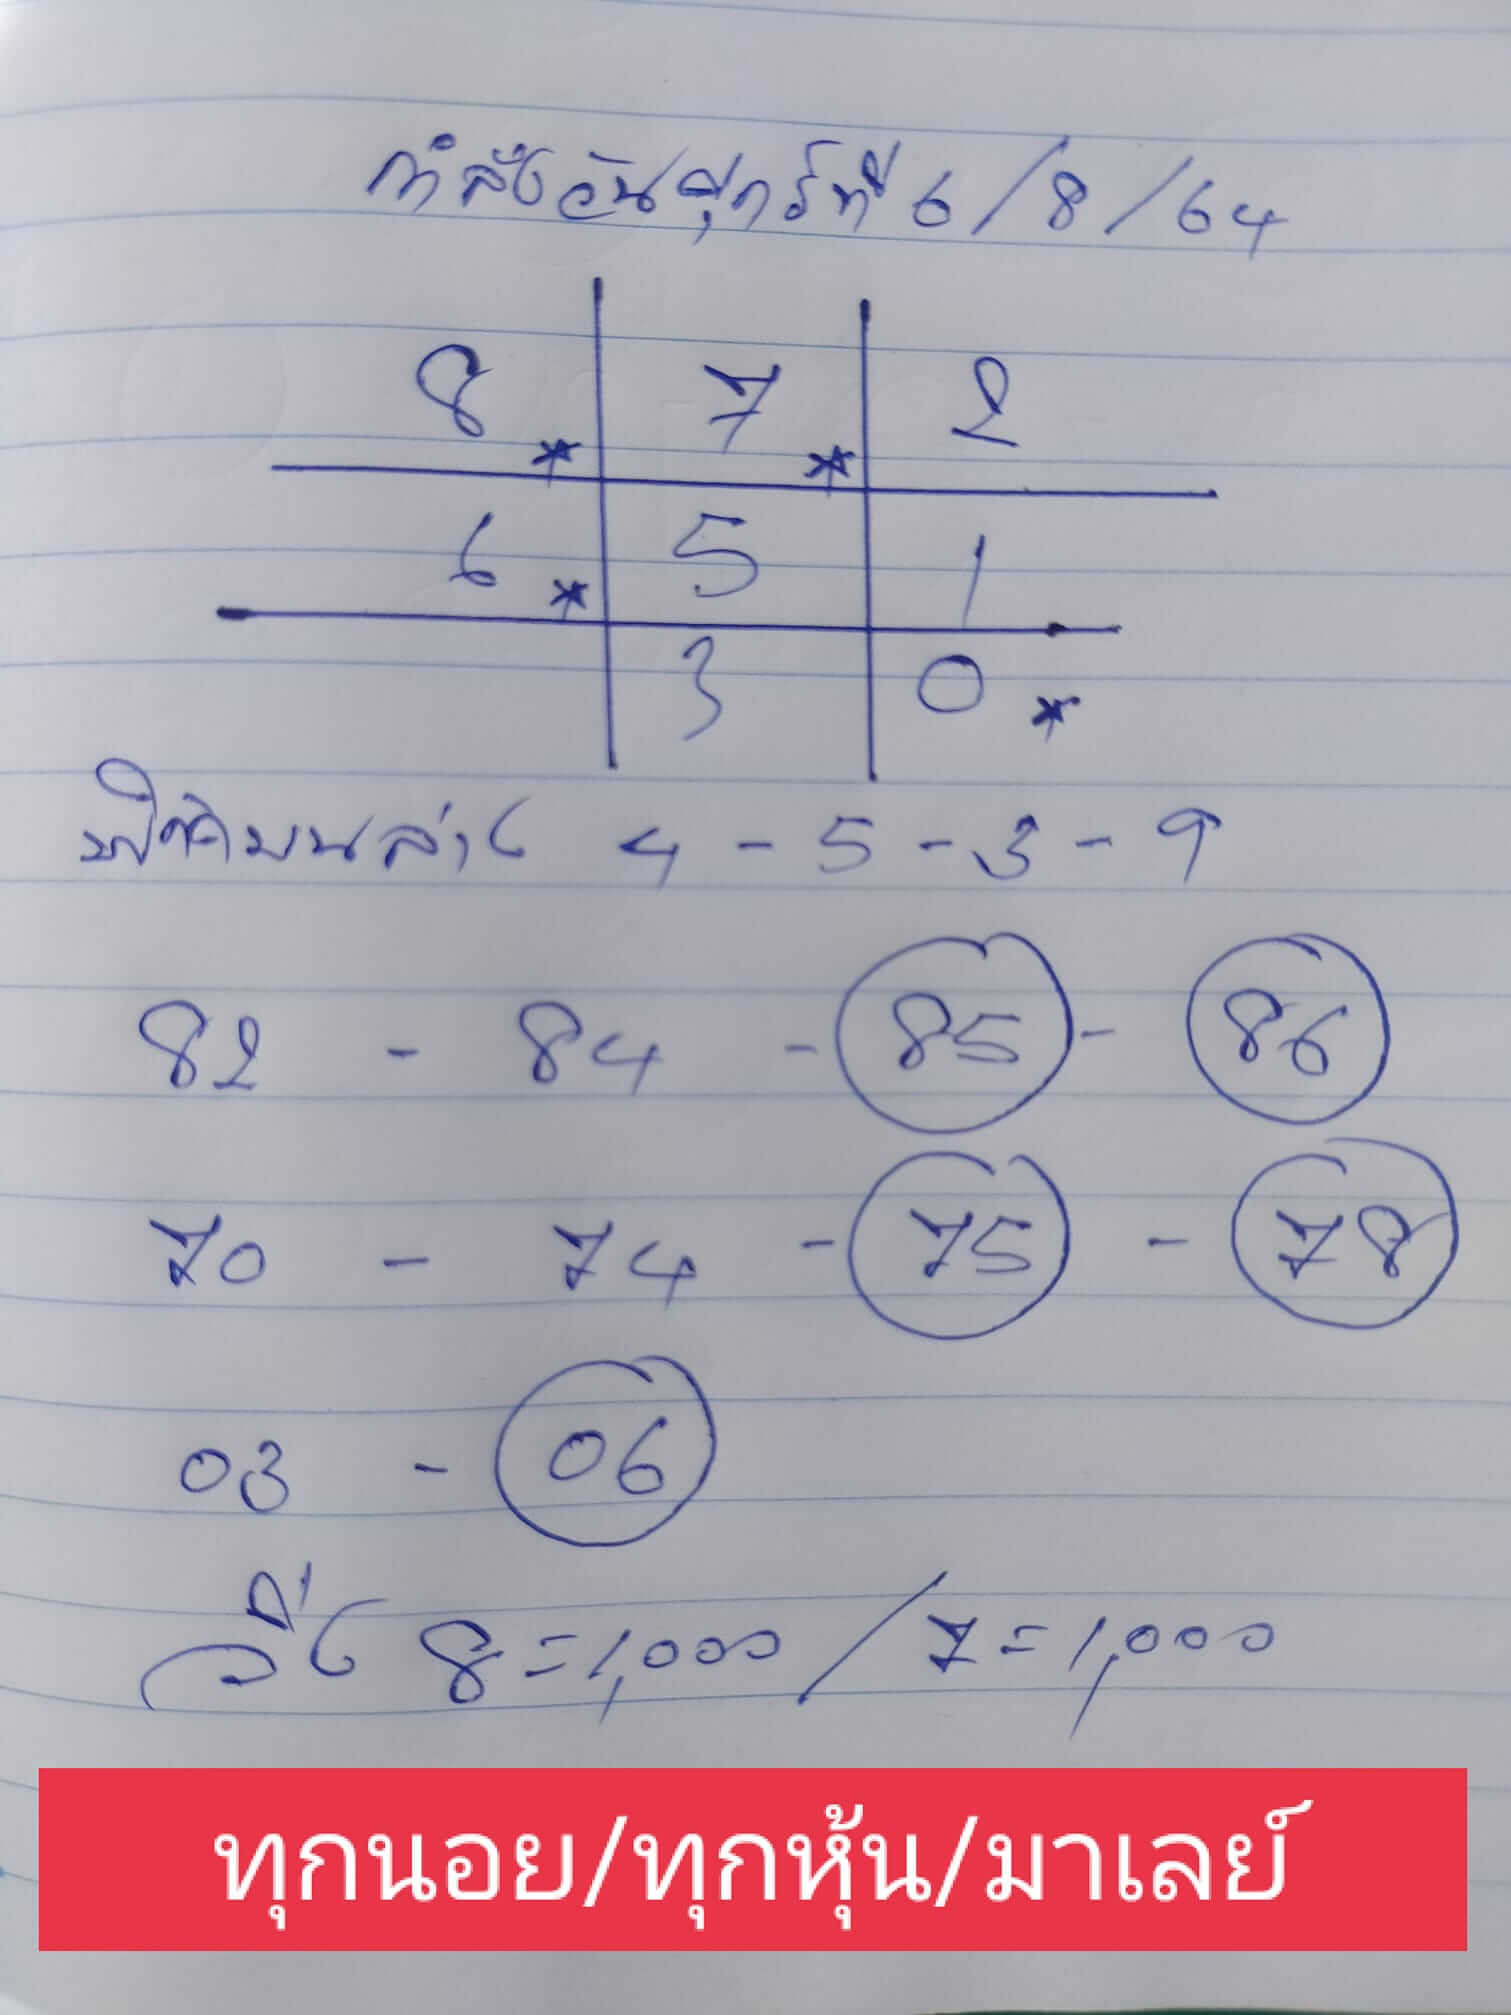 กำลังวันศุกร์ที่ 6/8/64
8 * 7 * 2
6 * 5 1
3 0 *
บนล่าง 4 - 5 - 3 - 9
82 - 84 - 85 - 86
70 - 74 - 75 - 78
03 - 06
วิ่ง 8 = 1,000 / 7 = 1,000
ทุกนอย/ทุกหุ้น/มาเลย์